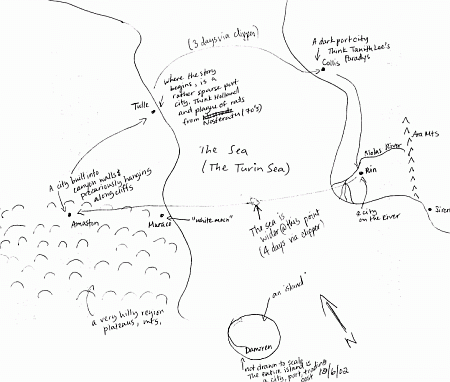 (3 days via clipper)
A dark port city
Think Tanith Lee's
Paradys
Collis
where the story
begins, is a
rather sparse port
city. Think Holland
and plague of rats
from Nosferatu (70's)
Tulle
The Sea
(The Turin Sea)
A city built into
canyon walls &
precariously hanging
along cliffs
River
Mts
Rin
a city
on the River
Siren
Muraco
"White moon"
The sea is
wider @ this point
(4 days via clipper)
a very hilly region
plateaus, mts.
an island
N
Damiren
not drawn to scale
The entire island is
a city, port, trading
post